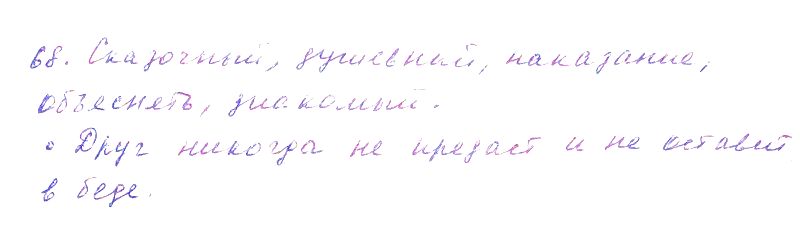 68. Сказочный, душевный, наказание,
объеснять, знакомый.
• Друг никогда не предаст и не оставит
в беде.